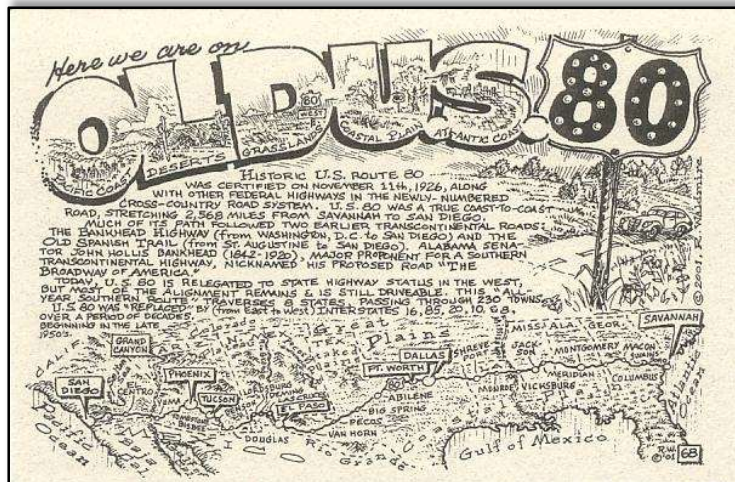 Here we are on
OLD U.S. 80
80
WEST
PACIFIC COAST
DESERTS
GRASSLANDS
COASTAL PLAIN
ATLANTIC COAST
HISTORIC U.S. ROUTE 80
WAS CERTIFIED ON NOVEMBER 11th, 1926, ALONG
WITH OTHER FEDERAL HIGHWAYS IN THE NEWLY-NUMBERED
CROSS-COUNTRY ROAD SYSTEM. U.S. 80 WAS A TRUE COAST-TO-COAST
ROAD, STRETCHING 2,568 MILES FROM SAVANNAH TO SAN DIEGO.
MUCH OF ITS PATH FOLLOWED TWO EARLIER TRANSCONTINENTAL ROADS:
THE BANKHEAD HIGHWAY (from WASHINGTON, D.C. to SAN DIEGO) AND THE
OLD SPANISH TRAIL (from ST. AUGUSTINE to SAN DIEGO). ALABAMA SENA-
TOR JOHN HOLLIS BANKHEAD (1842-1920), MAJOR PROPONENT FOR A SOUTHERN
TRANSCONTINENTAL HIGHWAY, NICKNAMED HIS PROPOSED ROAD "THE
BROADWAY OF AMERICA."
TODAY, U.S. 80 IS RELEGATED TO STATE HIGHWAY STATUS IN THE WEST,
BUT MOST OF THE ALIGNMENT REMAINS & IS STILL DRIVEABLE. THIS "ALL-
YEAR SOUTHERN ROUTE" TRAVERSES 8 STATES, PASSING THROUGH 230 TOWNS.
U.S. 80 WAS "REPLACED" BY (from East to West) INTERSTATES 16, 85, 20, 10, & 8,
OVER A PERIOD OF DECADES,
BEGINNING IN THE LATE
1950's.
© 2001 R. Waldmire
CALIF.
GRAND
CANYON
Great
Plains
TEX
MISS.
ALA.
GEOR.
SAVANNAH
SAN
DIEGO
EL
CENTRO
YUMA
PHOENIX
TUCSON
TOMBSTONE
BISBEE
DOUGLAS
LORDSBURG
DEMING
LAS CRUCES
EL PASO
VAN HORN
PECOS
BIG SPRING
ABILENE
80
FT. WORTH
DALLAS
SHREVE
PORT
MONROE
VICKSBURG
JACK-
SON
MERIDIAN
MONTGOMERY
COLUMBUS
MACON
SWAINS
BORO
Pacific
Ocean
Rio Grande
Gulf of Mexico
Atlantic
Ocean
R.W.
© '01
68